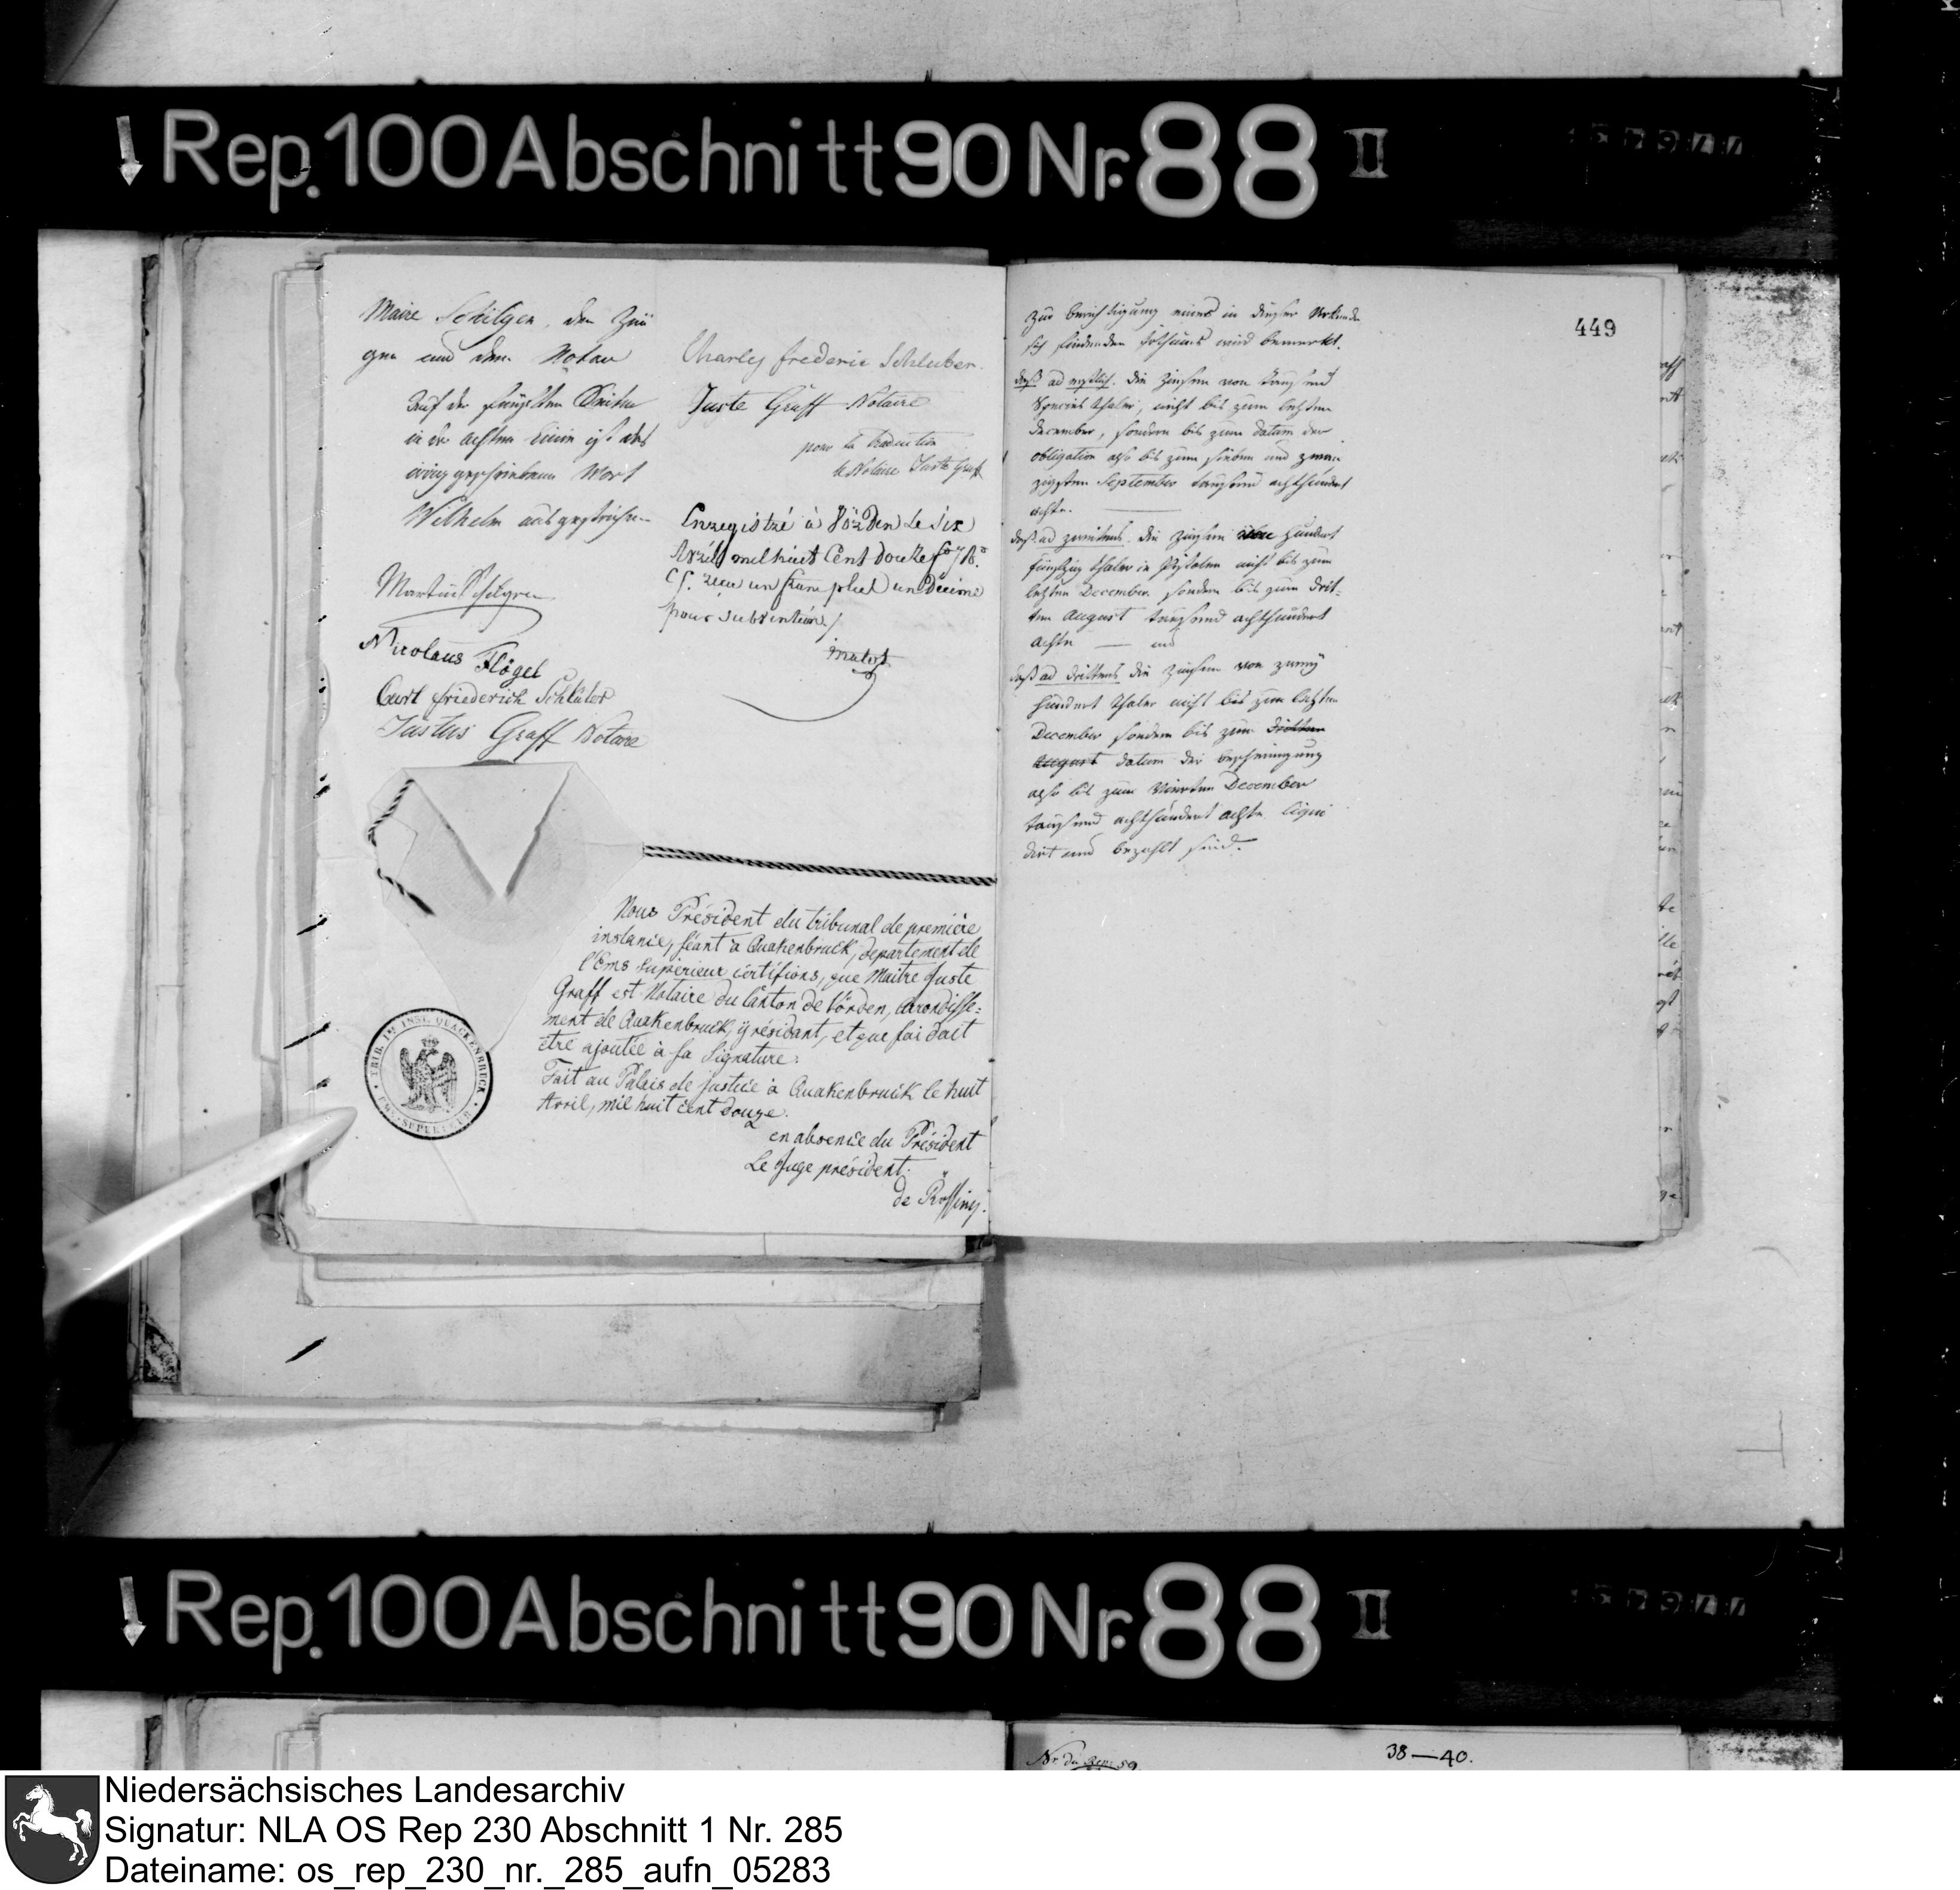 Rep. 100 Abschnitt 90 Nr. 88 II
Maire Schilgen, den Zeu
gen und dem Notar
Auf der Seite
in der achten Linie ist das
irrig geschriebene Wort
Wilhelm ausgestrichen
Martin Schilgen
Nicolaus Flögel
Curt friederich Schlüter
Justus Graff Notare
Charles frederic Schluter.
Juste Graff Notaire
pour la traduction
le Notaire Juste Graff
Enregistré à Vörden Le Six
Avril mil huit Cent douze
reçu un franc plus un Decime
pour subvention
Nous Président du tribunal de première
instance, séant à Quakenbruck, departement de
l'Ems supérieur certifions, que Maitre Juste
Graff est Notaire du Canton de Vörden, Arondisse=
ment de Quakenbruck, y résidant, et que foi doit
être ajoutée à sa Signature.
Fait au Palais de justice à Quakenbruck le huit
Avril, mil huit cent douze.
en absence du Président
Le Juge président.
de Rössing.
TRIB. IM INST. QUACKENBRUCK
EMS-SUPERIEUR
449
Zur Berichtigung eines in dieser Urkunde
sich findenden Irthums wird bemerkt.
daß ad erstlich. die Zinsen von tausend
Species thaler, nicht bis zum letzten
December, sondern bis zum datum der
obligation also bis zum sieben und zwan
zigsten September tausend achthundert
achte.
daß ad zweitens. die Zinsen hundert
fünfzig thaler in Pistolen nicht bis zum
letzten December sondern bis zum drit=
ten August tausend achthundert
achte — und
daß ad drittens die Zinsen von zwey
hundert thaler nicht bis zum letzten
December sondern bis zum dritten
August datum der Bescheinigung
also bis zum Vierten December
tausend achthundert achte liqui
dirt und bezahlt sind.
Rep. 100 Abschnitt 90 Nr. 88 II
38—40.
Niedersächsisches Landesarchiv
Signatur: NLA OS Rep 230 Abschnitt 1 Nr. 285
Dateiname: os_rep_230_nr._285_aufn_05283